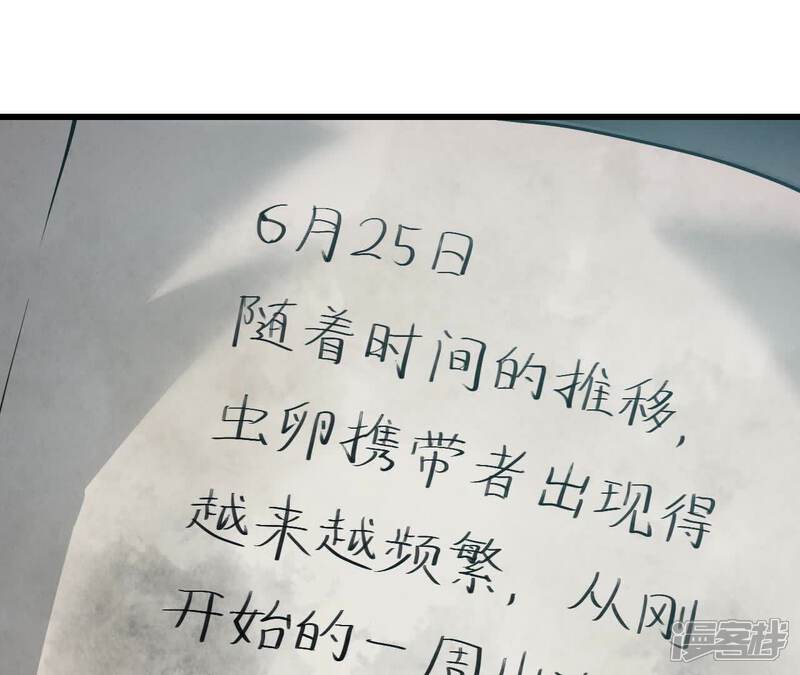 6月25日
随着时间的推移,
虫卵携带者出现得
越来越频繁, 从刚
开始的一周出
漫客栈